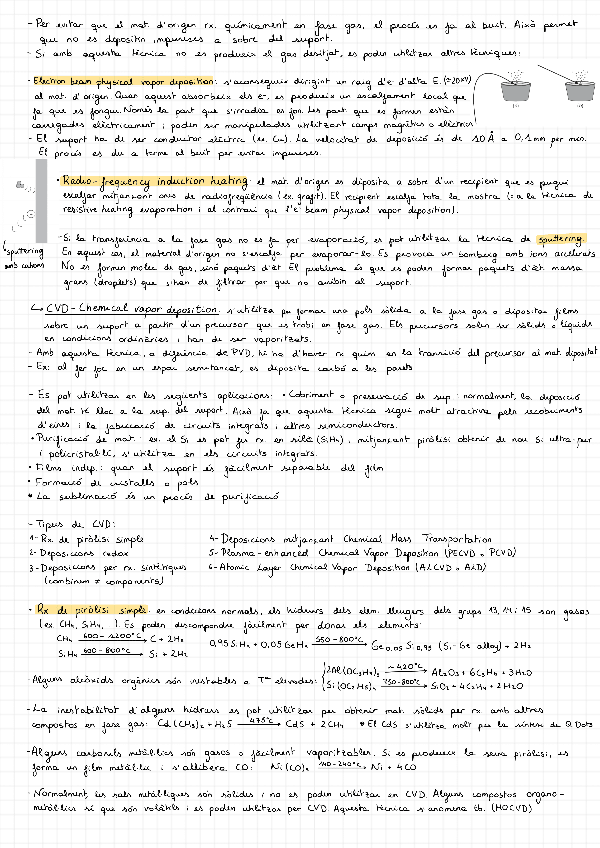 - Per evitar que el mat. d'origen rx. químicament en fase gas, el procés es fa al buit. Això permet
que no es depositin impureses a sobre del suport.
- Si amb aquesta tècnica no es produeix el gas desitjat, es poden utilitzar altres tècniques:
- Electron beam physical vapor deposition: s'aconsegueix dirigint un raig d'e⁻ d'alta E. (≈20KV)
al mat. d'origen. Quan aquest absorbeix els e⁻, es produeix un escalfament local que
fa que es fongui. Només la part que s'irradia es fon. Les part. que es formen estan
carregades elèctricament i poden ser manipulades utilitzant camps magnètics o elèctrics
- El suport ha de ser conductor elèctric (ex. Cu). La velocitat de deposició és de 10 Å a 0,1 mm per min.
El procés es du a terme al buit per evitar impureses.
• Radio-frequency induction heating: el mat. d'origen es diposita a sobre d'un recipient que es pugui
escalfar mitjançant ones de radiofreqüència (ex. grafit). El recipient escalfa tota la mostra (= a la tècnica de
resistive heating evaporation i al contrari que l'e⁻ beam physical vapor deposition).
- Si la transferència a la fase gas no es fa per evaporació, es pot utilitzar la tècnica de sputtering.
En aquest cas, el material d'origen no s'escalfa per evaporar-lo. Es provoca un bombeig amb ions accelerats
No es formen molec. de gas, sinó paquets d'àt. El problema és que es poden formar paquets d'àt. massa
grans (droplets) que s'han de filtrar per que no arribin al suport.
sputtering
amb cations
↳ CVD - Chemical vapor deposition: s'utilitza per formar una pols sòlida a la fase gas o dipositar films
sobre un suport a partir d'un precursor que es troba en fase gas. Els precursors solen ser sòlids o líquids
en condicions ordinàries i han de ser vaporitzats.
- Amb aquesta tècnica, a diferència de PVD, hi ha d'haver rx quím. en la transició del precursor al mat. dipositat
- Ex: al fer foc en un espai semitancat, es diposita carbó a les parets
- Es pot utilitzar en les següents aplicacions: • Cobriment o preservació de sup.: normalment, la deposició
del mat. té lloc a la sup. del suport. Això fa que aquesta tècnica sigui molt atractiva pels recobriments
d'eines i la fabricació de circuits integrats i altres semiconductors.
• Purificació de mat.: ex. el Si es pot fer rx. en silà (SiH₄), mitjançant piròlisi obtenir de nou Si ultra-pur
i policristal·lí, s'utilitza en els circuits integrats.
• Films indep.: quan el suport és fàcilment separable del film
• Formació de cristalls o pols
* La sublimació és un procés de purificació
- Tipus de CVD:
1- Rx. de piròlisi simple
4- Deposicions mitjançant Chemical Mass Transportation
2- Deposicions redox
5- Plasma-enhanced Chemical Vapor Deposition (PECVD o PCVD)
3- Deposicions per rx. sintètiques
6- Atomic Layer Chemical Vapor Deposition (ALCVD o ALD)
(combinen ≠ components)
• Rx de piròlisi simple: en condicions normals, els hidrurs dels elem. lleugers dels grups 13, 14 i 15 són gasos
(ex. CH₄, SiH₄, ). Es poden descompondre fàcilment per donar els elements:
CH₄ 600-1200°C→ C + 2H₂
0,95 SiH₄ + 0,05 GeH₄ 550-800°C→ Ge₀,₀₅ Si₀,₉₅ (Si-Ge alloy) + 2H₂
SiH₄ 600-800°C→ Si + 2H₂
- Alguns alcòxids orgànics són inestables a Tª elevades:
2Al(OC₂H₅)₃ ~420°C→ Al₂O₃ + 6C₂H₄ + 3H₂O
Si(OC₂H₅)₄ 750-800°C→ SiO₂ + 4C₂H₄ + 2H₂O
- La inestabilitat d'alguns hidrurs es pot utilitzar per obtenir mat. sòlids per rx amb altres
compostos en fase gas: Cd(CH₃)₂ + H₂S 475°C→ CdS + 2CH₄ * El CdS s'utilitza molt per la síntesi de Q. Dots
- Alguns carbonils metàl·lics són gasos o fàcilment vaporitzables. Si es produeix la seva piròlisi, es
forma un film metàl·lic i s'allibera CO: Ni(CO)₄ 140-240°C→ Ni + 4CO
- Normalment, les sals metàl·liques són sòlides i no es poden utilitzar en CVD. Alguns compostos organo-
metàl·lics sí que són volàtils i es poden utilitzar per CVD. Aquesta tècnica s'anomena tb. (MOCVD)